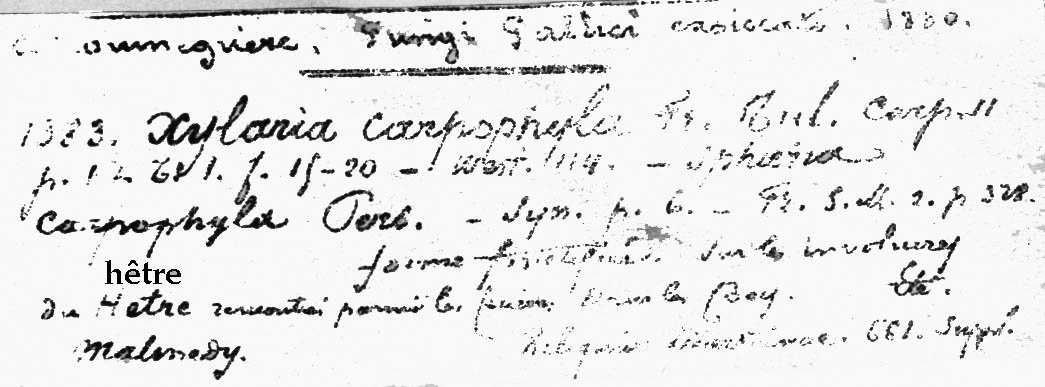 oumeguere. Fungi Gallici exsiccati. 1880.
1383. Xylaria carpophyla Fr. Tul. Carp. II
p. 12 f. 15-20 - West. 114. - Sphæria
carpophyla Pers. - Syn. p. 6. - Fr. S. M. 2. p 328.
forme sur les involucres
hêtre
du Hetre rencontré parmi les Bois les Bay. Eté.
Malmedy. Reliquiæ 661. Suppl.